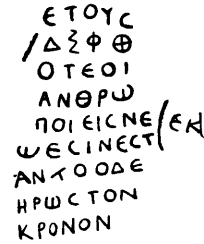 ΕΤΟΥϹ
/ΔΞΦΘ
ΟΤΕΟΙ
ΑΝΘΡω
ΠΟΙΕΙϹΝΕ
ωΕϹΙΝΕϹΤ/ΕΚ
ΑΝΤΟΟΔΕ
ΗΡωϹΤΟΝ
ΚΡΟΝΟΝ